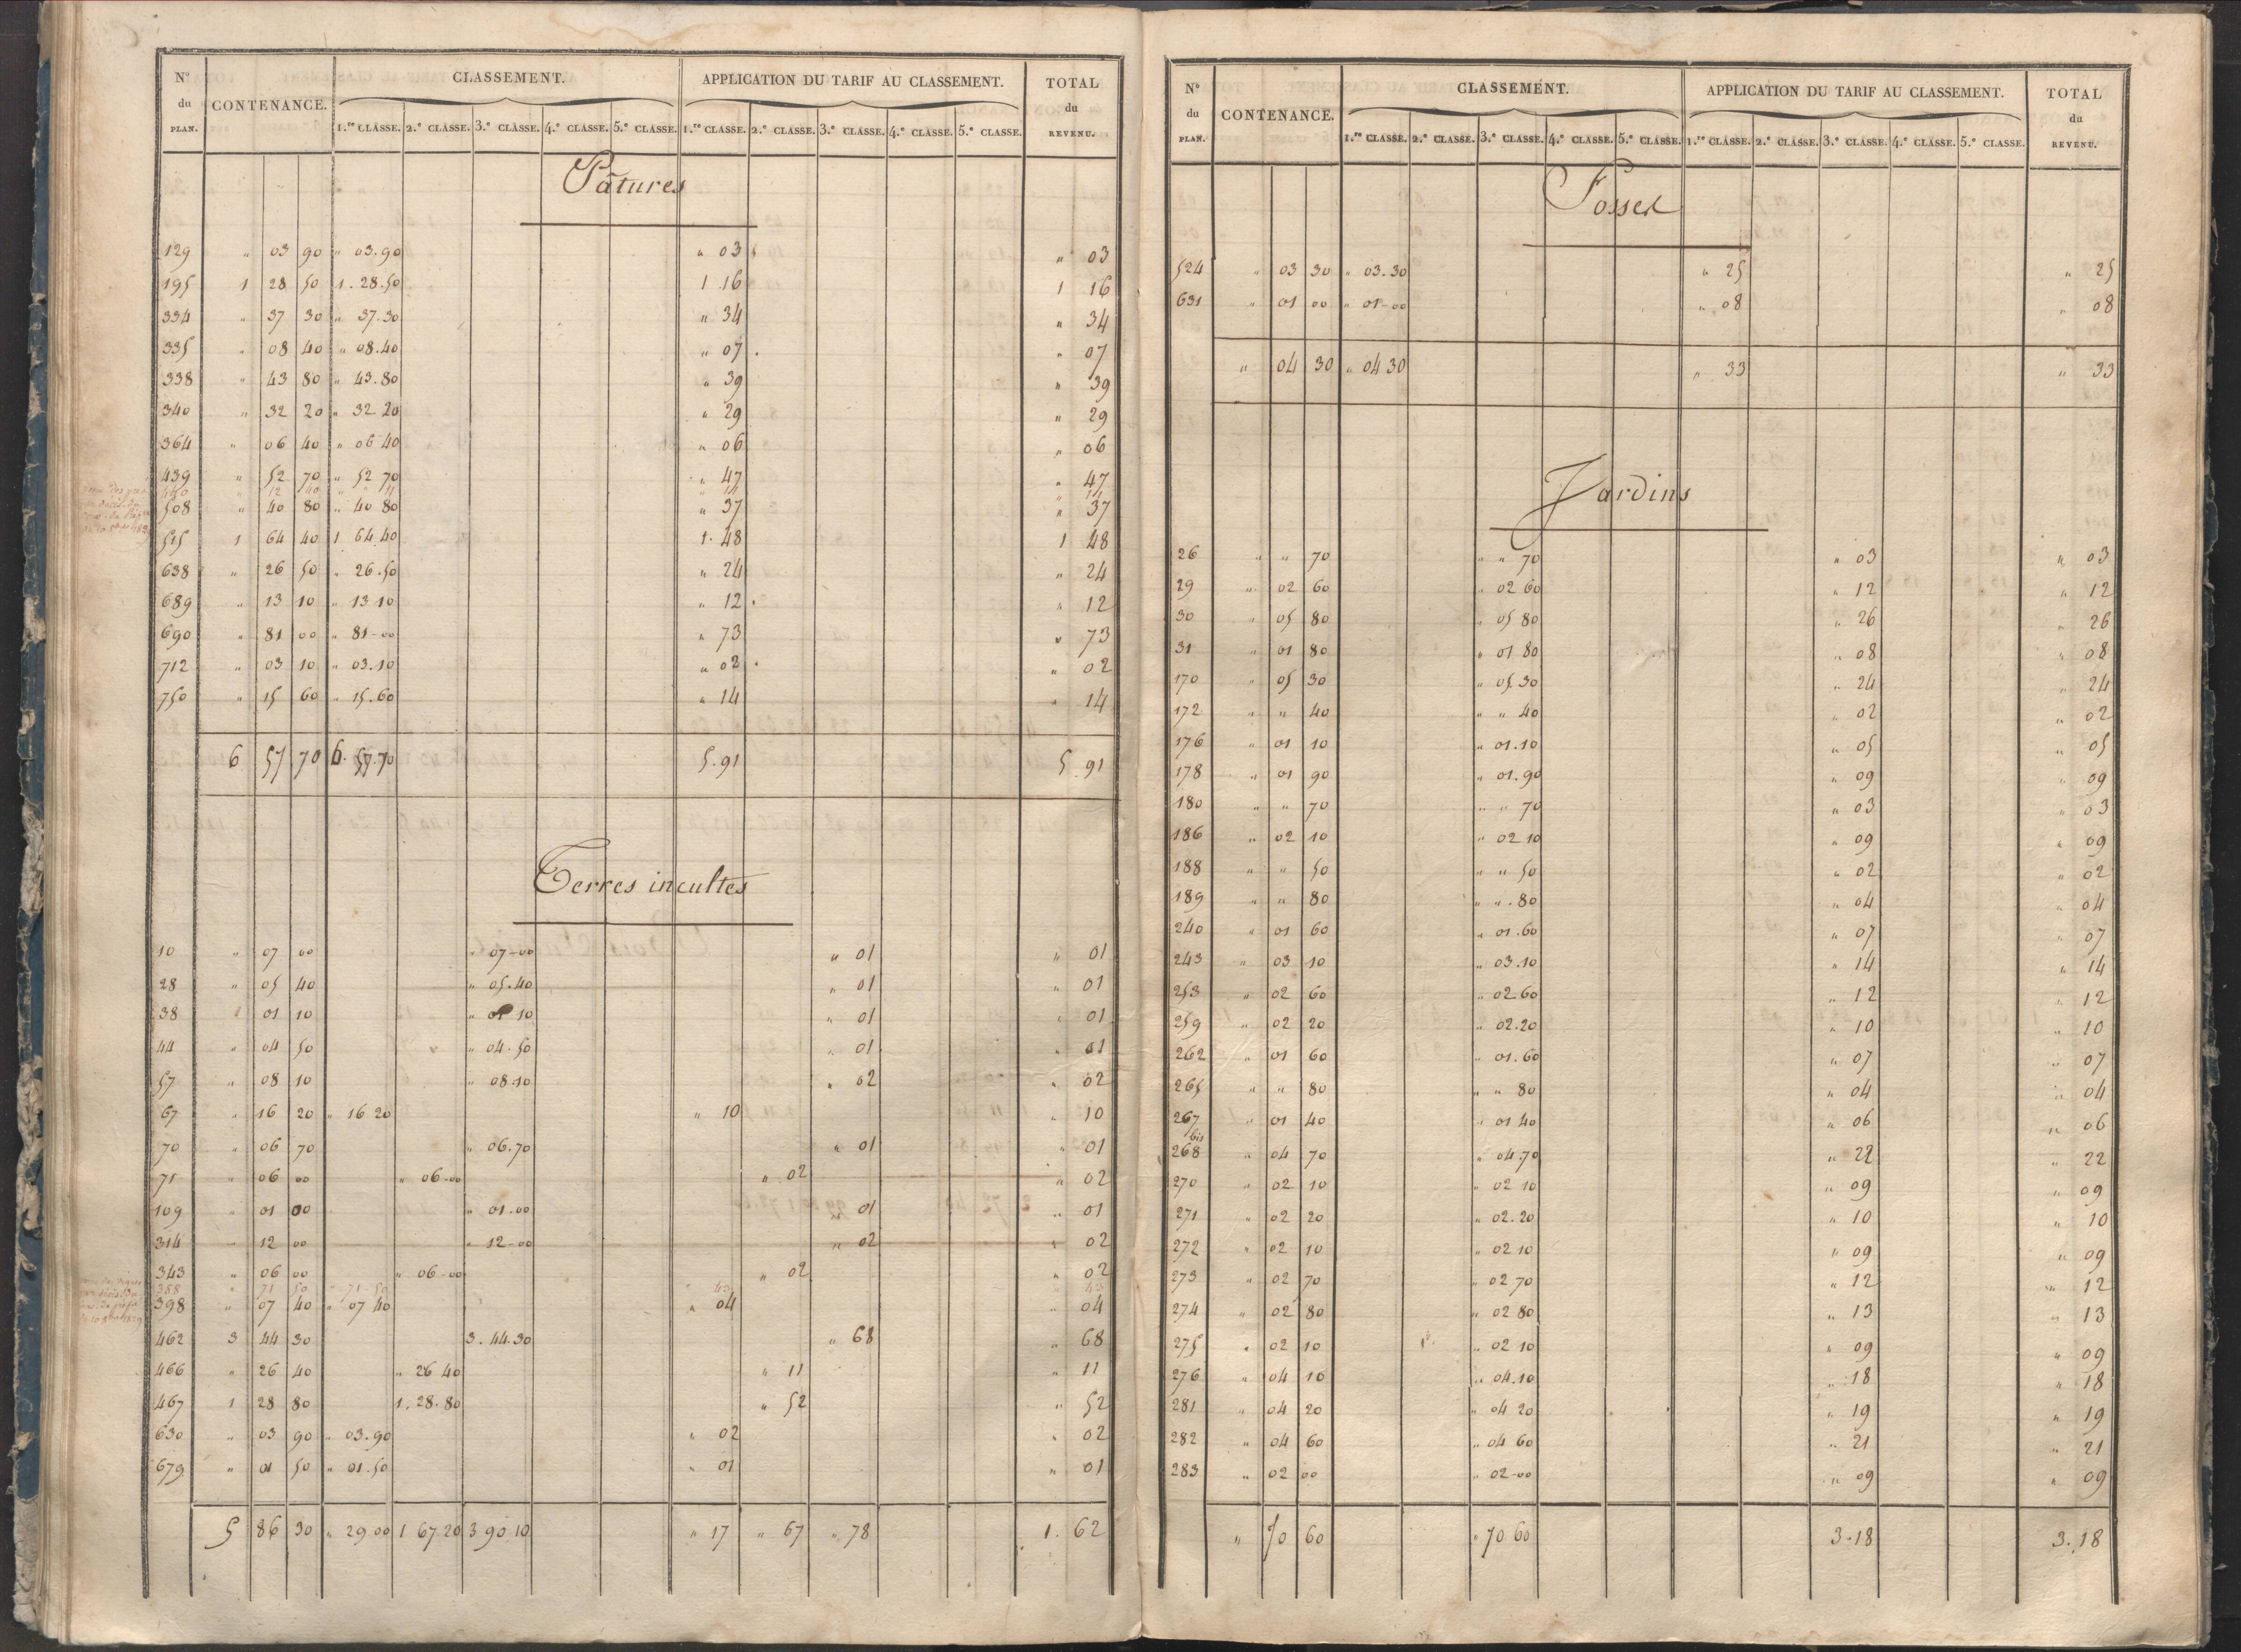 N° du PLAN. CONTENANCE. CLASSEMENT. APPLICATION DU TARIF AU CLASSEMENT. TOTAL du REVENU.
1.re CLASSE. 2.e CLASSE. 3.e CLASSE. 4.e CLASSE. 5.e CLASSE. 1.re CLASSE. 2.e CLASSE. 3.e CLASSE. 4.e CLASSE. 5.e CLASSE.
Pâtures
129 " 03 90 " 03.90 " 03 " 03
195 1 28 50 1.28.50 1.16 1 16
334 " 37 30 " 37.30 " 34 " 34
335 " 08 40 " 08.40 " 07 " 07
338 " 43 80 " 43.80 " 39 " 39
340 " 32 20 " 32 20 " 29 " 29
364 " 06 40 " 06 40 " 06 " 06
439 " 52 70 " 52 70 " 47 " 47
450 " 12 40 " " 11 " 11 " 11
508 " 40 80 " 40 80 " 37 " 37
515 1 64 40 1 64.40 1.48 1 48
638 " 26 50 " 26.50 " 24 " 24
689 " 13 10 " 13 10 " 12 " 12
690 " 81 00 " 81-00 " 73 " 73
712 " 03 10 " 03.10 " 02 " 02
750 " 15 60 " 15.60 " 14 " 14
6 57 70 6.57.70 5.91 5.91
Terres incultes
10 " 07 00 " 07-00 " 01 " 01
28 " 05 40 " 05.40 " 01 " 01
38 " 01 10 " 01 10 " 01 " 01
44 " 04 50 " 04.50 " 01 " 01
57 " 08 10 " 08.10 " 02 " 02
67 " 16 20 " 16 20 " 10 " 10
70 " 06 70 " 06.70 " 01 " 01
71 " 06 00 " 06-00 " 02 " 02
109 " 01 00 " 01.00 " 01 " 01
314 " 12 00 " 12-00 " 02 " 02
343 " 06 00 " 06-00 " 02 " 02
388 " 71 50 " 71-50 " 43 " 43
398 " 07 40 " 07 40 " 04 " 04
462 3 44 30 3.44.30 " 68 " 68
466 " 26 40 " 26 40 " 11 " 11
467 1 28 80 1.28.80 " 52 " 52
630 " 03 90 " 03.90 " 02 " 02
679 " 01 50 " 01.50 " 01 " 01
5 86 30 " 29.00 1 67.20 3 90.10 " 17 " 67 " 78 1.62
N° du PLAN. CONTENANCE. CLASSEMENT. APPLICATION DU TARIF AU CLASSEMENT. TOTAL du REVENU.
1.re CLASSE. 2.e CLASSE. 3.e CLASSE. 4.e CLASSE. 5.e CLASSE. 1.re CLASSE. 2.e CLASSE. 3.e CLASSE. 4.e CLASSE. 5.e CLASSE.
Fosses
524 " 03 30 " 03.30 " 25 " 25
631 " 01 00 " 01-00 " 08 " 08
" 04 30 " 04 30 " 33 " 33
Jardins
26 " " 70 " " 70 " 03 " 03
29 " 02 60 " 02 60 " 12 " 12
30 " 05 80 " 05 80 " 26 " 26
31 " 01 80 " 01 80 " 08 " 08
170 " 05 30 " 05.30 " 24 " 24
172 " " 40 " " 40 " 02 " 02
176 " 01 10 " 01.10 " 05 " 05
178 " 01 90 " 01.90 " 09 " 09
180 " " 70 " " 70 " 03 " 03
186 " 02 10 " 02 10 " 09 " 09
188 " " 50 " " 50 " 02 " 02
189 " " 80 " " 80 " 04 " 04
240 " 01 60 " 01.60 " 07 " 07
243 " 03 10 " 03.10 " 14 " 14
253 " 02 60 " 02.60 " 12 " 12
259 " 02 20 " 02.20 " 10 " 10
262 " 01 60 " 01.60 " 07 " 07
265 " " 80 " " 80 " 04 " 04
267 " 01 40 " 01 40 " 06 " 06
bis
268 " 04 70 " 04.70 " 22 " 22
270 " 02 10 " 02 10 " 09 " 09
271 " 02 20 " 02.20 " 10 " 10
272 " 02 10 " 02 10 " 09 " 09
273 " 02 70 " 02 70 " 12 " 12
274 " 02 80 " 02 80 " 13 " 13
275 " 02 10 " 02 10 " 09 " 09
276 " 04 10 " 04.10 " 18 " 18
281 " 04 20 " 04 20 " 19 " 19
282 " 04 60 " 04 60 " 21 " 21
283 " 02 00 " 02-00 " 09 " 09
" 70 60 " 70 60 3-18 3.18